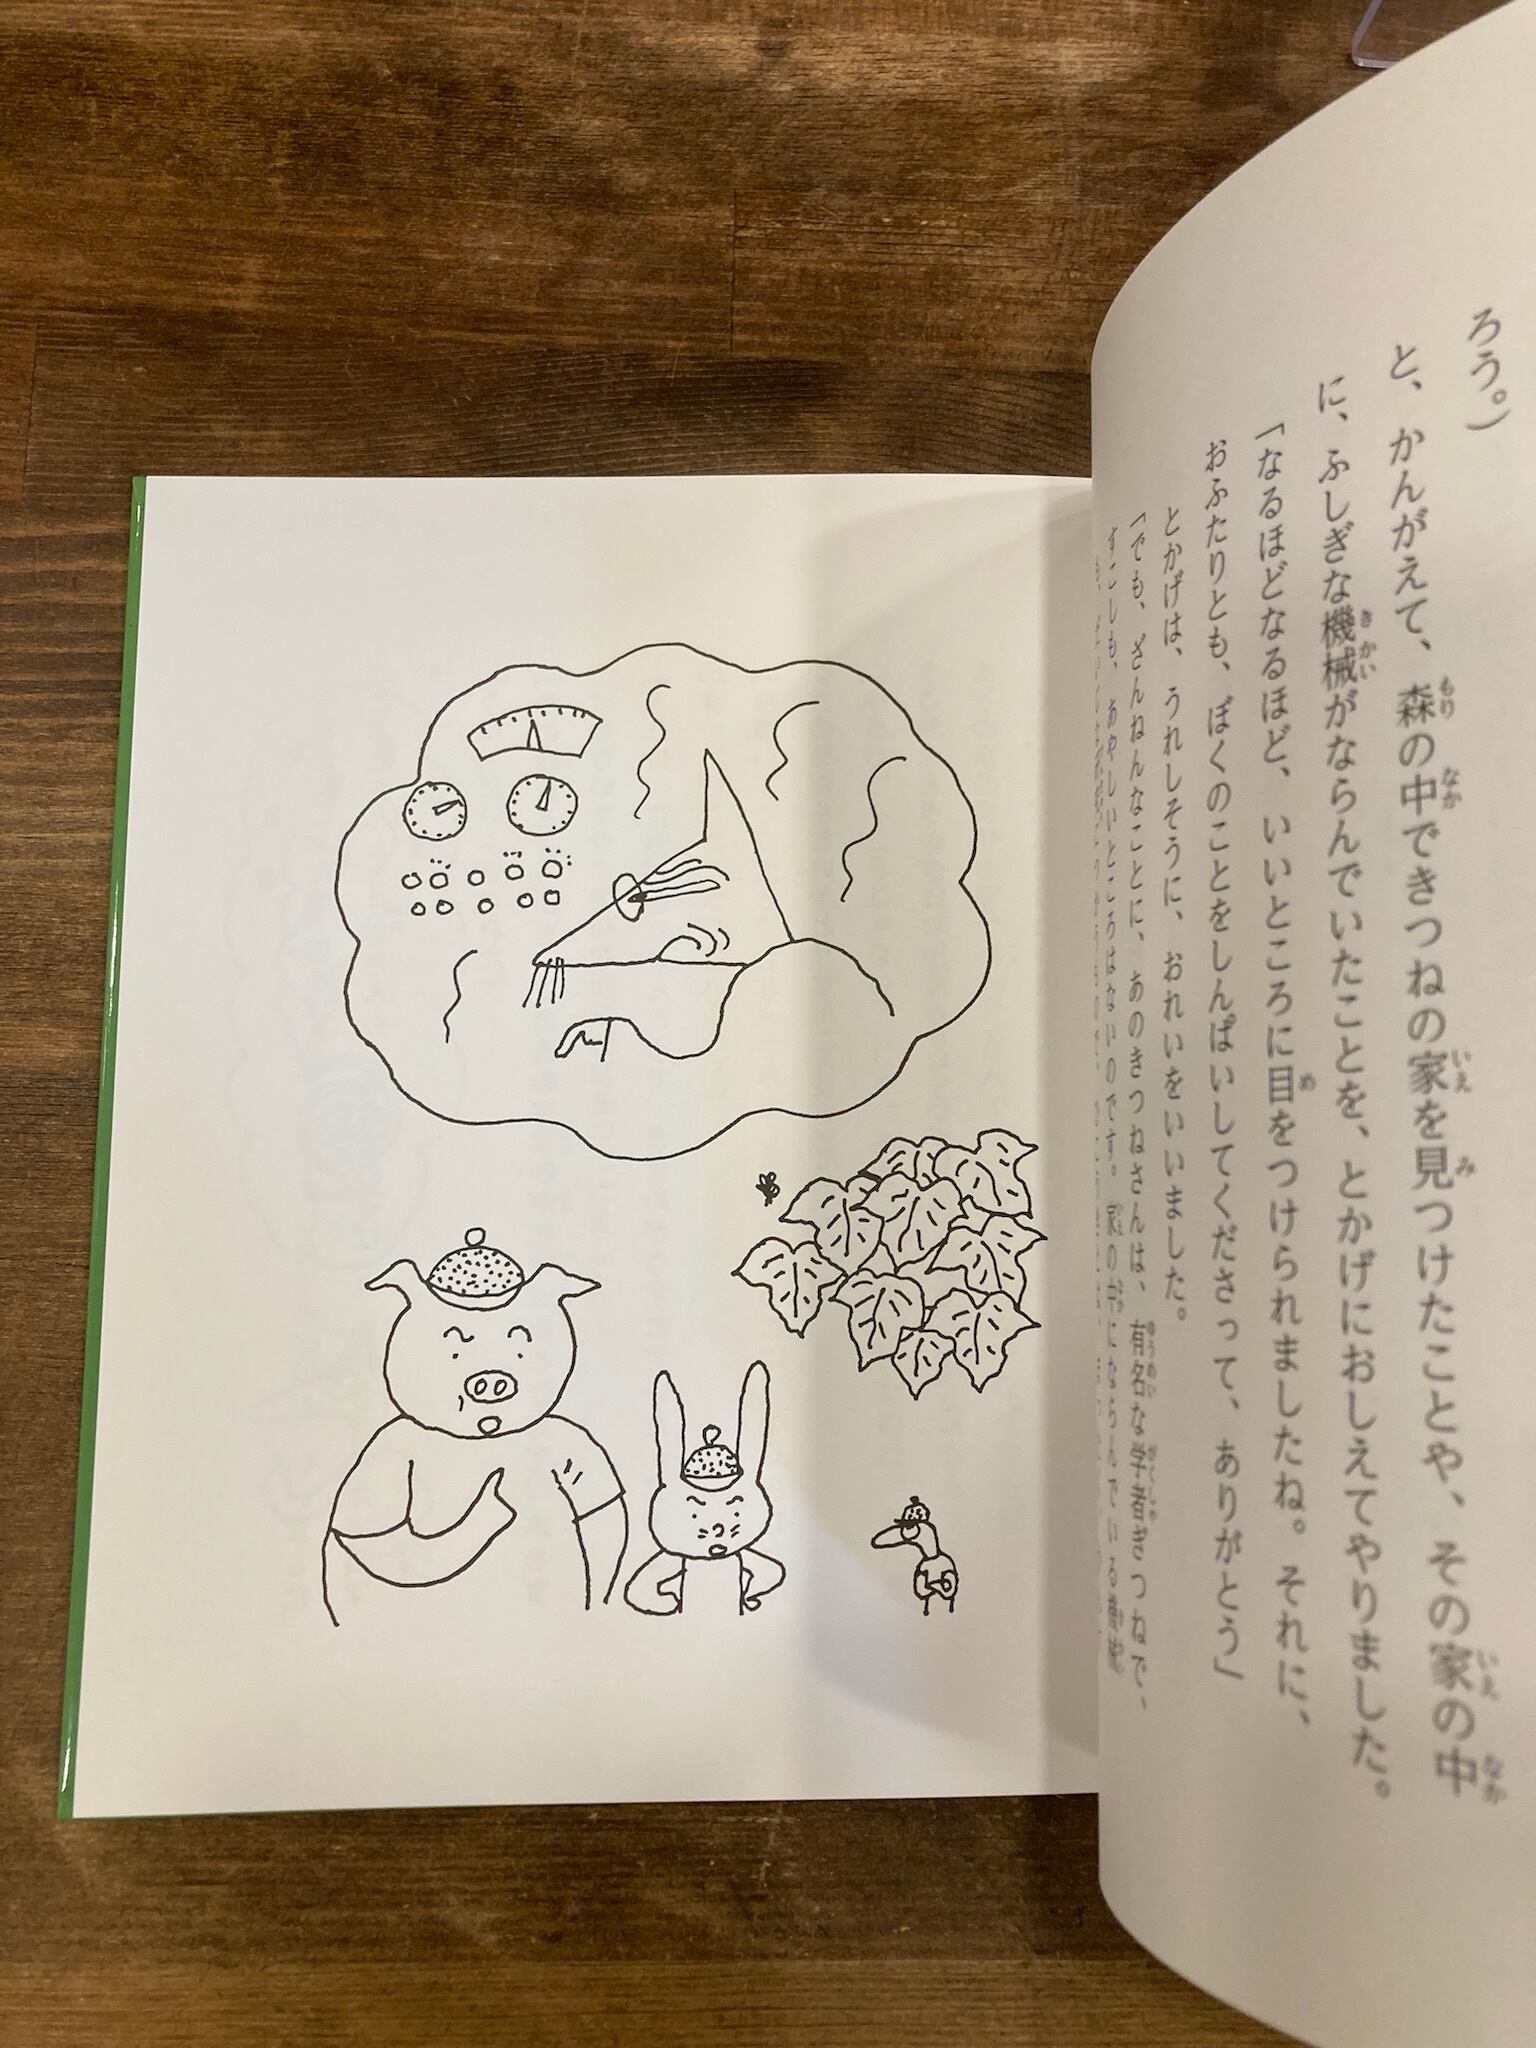 ろう。）
と、かんがえて、森の中できつねの家を見つけたことや、その家の中
に、ふしぎな機械がならんでいたことを、とかげにおしえてやりました。
「なるほどなるほど、いいところに目をつけられましたね。それに、
おふたりとも、ぼくのことをしんぱいしてくださって、ありがとう」
とかげは、うれしそうに、おれいをいいました。
「でも、ざんねんなことに、あのきつねさんは、有名な学者ぎつねで、
すこしも、あやしいところはないのです。家の中にならんでいる機械